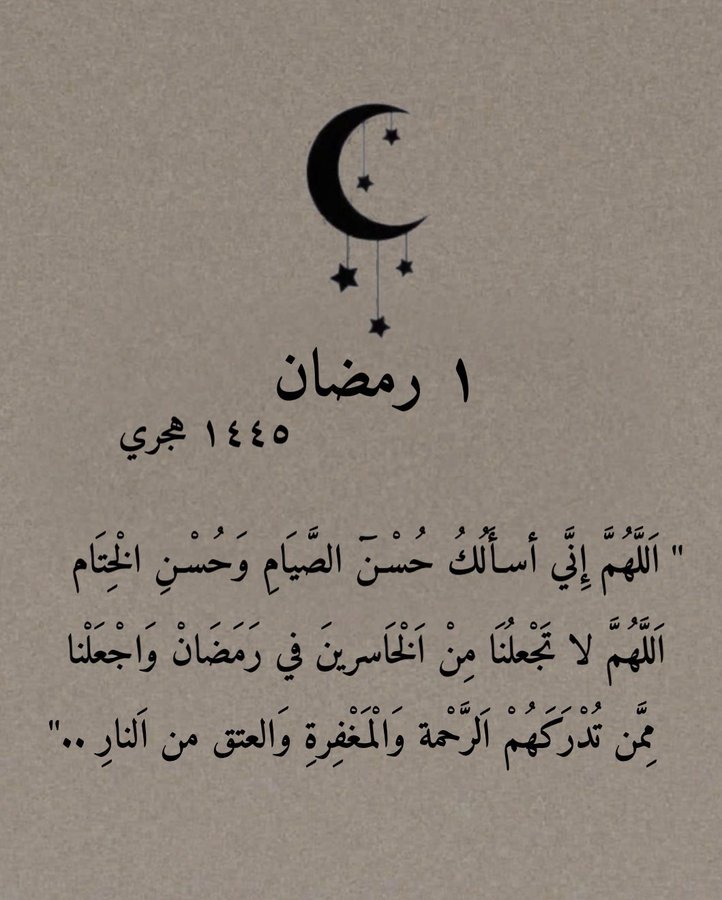 ١ رمضان
١٤٤٥ هجري
" اَللَّهُمَّ إِنَّي أسـأَلُكُ حُسْنَ الصَّيَامِ وَحُسْنِ الْخِتَام
اَللَّهُمَّ لا تَجْعلُنَا مِنْ اَلْخَاسرينَ في رَمَضَانْ وَاجْعَلْنا
مِمَّن تُدْرَكَهُمْ اَلرَّحْمة وَالْمَغْفِرةِ وَالعتق من اَلنارِ .."